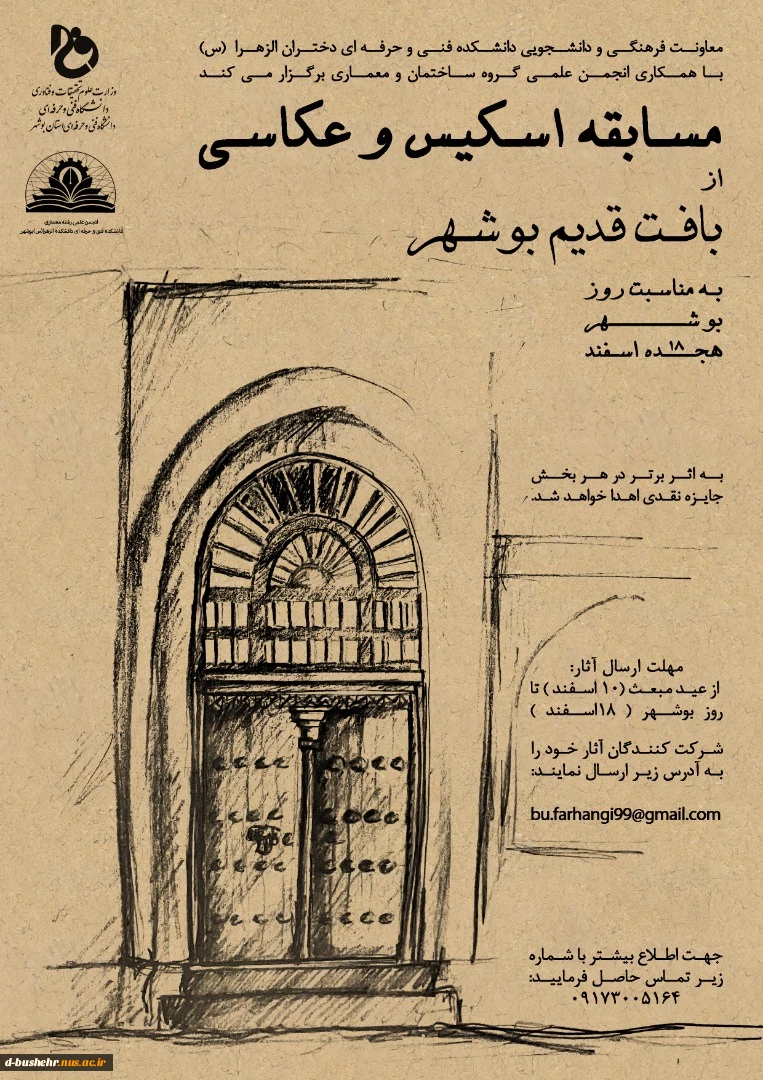 معاونت فرهنگی و دانشجویی دانشکده فنی و حرفه ای دختران الزهرا (س)
با همکاری انجمن علمی گروه ساختمان و معماری برگزار می کند
مسابقه اسکیس و عکاسی
از
بافت قدیم بوشهر
به مناسبت روز
بوشهر
هجده ۱۸ اسفند
وزارت علوم تحقیقات و فناوری
دانشگاه فنی و حرفه ای
دانشگاه فنی و حرفه ای استان بوشهر
انجمن علمی رشته معماری
به اثر برتر در هر بخش
جایزه نقدی اهدا خواهد شد.
مهلت ارسال آثار:
از عید مبعث (۱۰ اسفند) تا
روز بوشهر (۱۸ اسفند)
شرکت کنندگان آثار خود را
به آدرس زیر ارسال نمایند:
bu.farhangi99@gmail.com
جهت اطلاع بیشتر با شماره
زیر تماس حاصل فرمایید:
۰۹۱۷۳۰۰۵۱۶۴
d-bushehr.nus.ac.ir